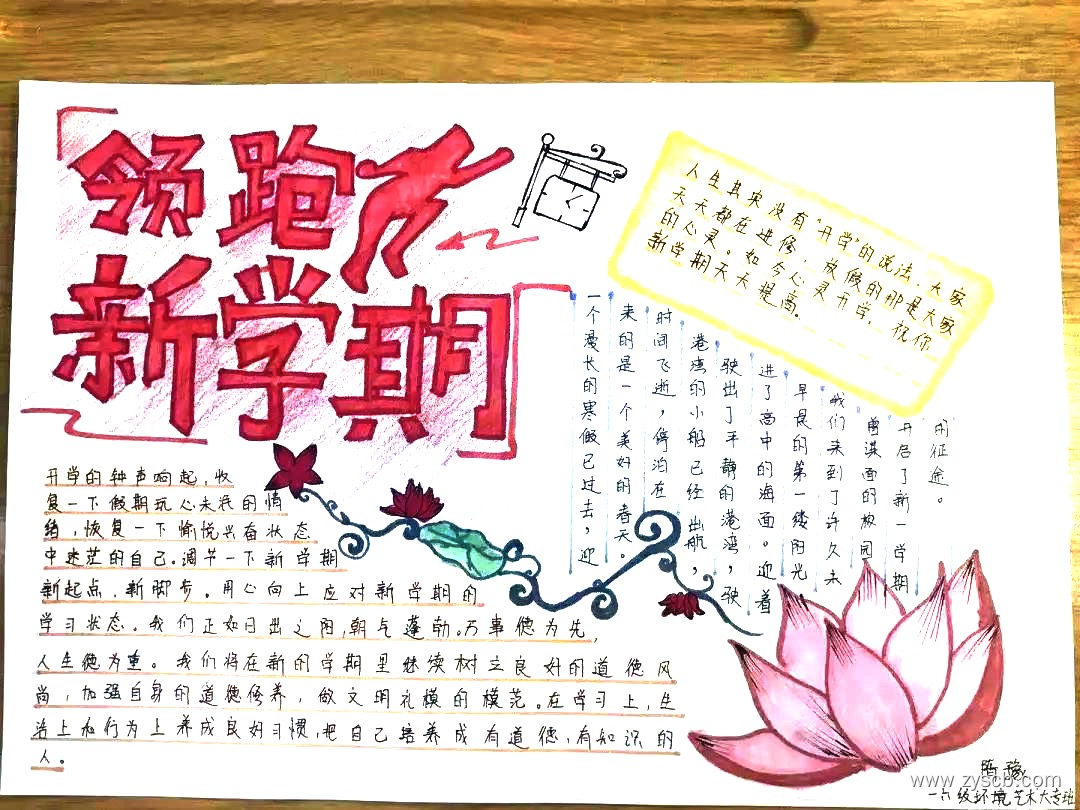 领跑
新学期
人生其实没有"开学"的说法，大家
天天都在进修，放假的那是大家
的心灵。如今心灵开学，祝你
新学期天天提高。
一个漫长的寒假已过去，迎
来的是一个美好的春天。
时间飞逝，停泊在
港湾的小船已经出航，
驶出了平静的港湾，驶
进了高中的海面。迎着
早晨的第一缕阳光
我们来到了许久未
曾谋面的校园
开启了新一学期
的征途。
开学的钟声响起，收
复一下假期玩心未泯的情
绪，恢复一下愉悦兴奋状态
中迷茫的自己。调节一下新学期
新起点，新脚步。用心向上应对新学期的
学习状态。我们正如日出之阳，朝气蓬勃。万事德为先，
人生德为重。我们将在新的学期里继续树立良好的道德风
尚，加强自身的道德修养，做文明礼模的模范。在学习上，生
活上和行为上养成良好习惯，把自己培养成有道德，有知识的
人。
豫
一六级环境艺术大专班
www.zyscb.com